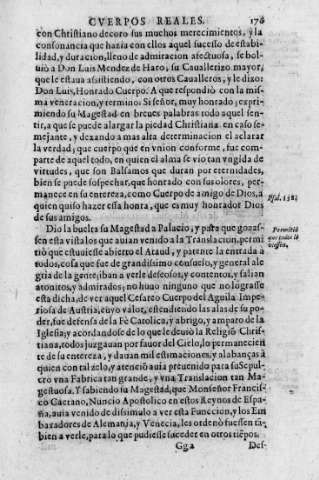 CVERPOS REALES. 176
con Christiano decoro sus muchos merecimientos, y la
consonancia que hazia con ellos aquel sucesso de estabi-
lidad, y duracion, lleno de admiracion afectuosa, se bol-
uiò a Don Luis Mendez de Haro, su Cauallerizo mayor,
que le estaua assistiendo, con otros Caualleros, y le dixo:
Don Luis, Honrado Cuerpo. A que respondiò con la mis-
ma veneracion, y termino: Si señor, muy honrado; expri-
miendo su Magestad en breues palabras todo aquel sen-
tir, a que se puede alargar la piedad Christiana en caso se-
mejante, y dexando a mas alta determinacion el aclarar
la verdad; que cuerpo que en vnion conforme, fue com-
parte de aquel todo, en quien el alma se vio tan vngida de
virtudes, que son Balsamos que duran por eternidades,
bien se puede sospechar, que honrado con sus olores, per-
manece en su entereza, como Cuerpo de amigo de Dios, a
quien quiso hazer esta honra, que es muy honrador Dios
de sus amigos.
Psal. 138.
Dio la buelta su Magestad a Palacio, y para que gozas-
sen esta vista los que auian venido a la Translacion, permi
tiò que estuuiesse abierto el Ataud, y patente la entrada à
todos, cosa que fue de grandissimo consuelo, y general ale
gria de la gente; iban a verle desseosos, y contentos, y salian
atonitos, y admirados; no huuo ninguno que no lograsse
esta dicha, de ver aquel Cesareo Cuerpo del Aguila Impe-
riosa de Austria, cuyo valor, estendiendo las alas de su po-
der, fue defensa de la Fè Catolica, y abrigo, y amparo de la
Iglesia; y acordandose de lo que le deuiò la Religiō Christ-
iana, todos juzgauan por fauor del Cielo, lo permanecien
te de su entereza, y dauan mil estimaciones, y alabanças à
quien con tal zelo, y atenciō auia preuenido para su Sepul-
cro vna Fabrica tan grande, y vna Translacion tan Ma-
gestuosa. Y sabiendo su Magestad, que Monseñor Francis-
co Caetano, Nuncio Apostolico en estos Reynos de Espa-
ña, auia venido de dissimulo a ver esta Funccion, y los Em
baradores de Alemania, y Venecia, les ordenò fuessen tā-
bien a verle, para lo que pudiesse suceder en otros tiēpos.
Permitiò
que todos le
viessen.
Gg 2 Des-